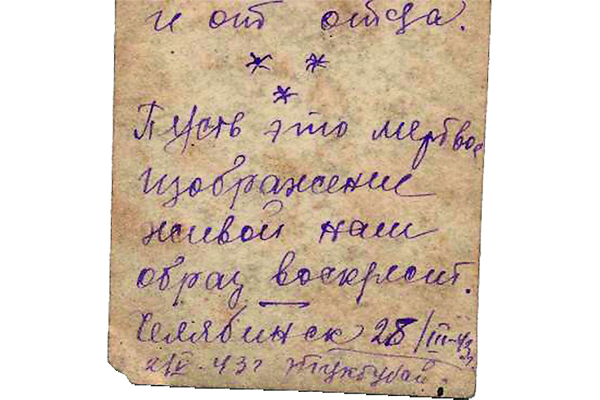 и от отца.
* *
*
Пусть это мертвое
изображение
живой наш
образ воскресит.
Челябинск 28/III-43 г.
2/IV-43г